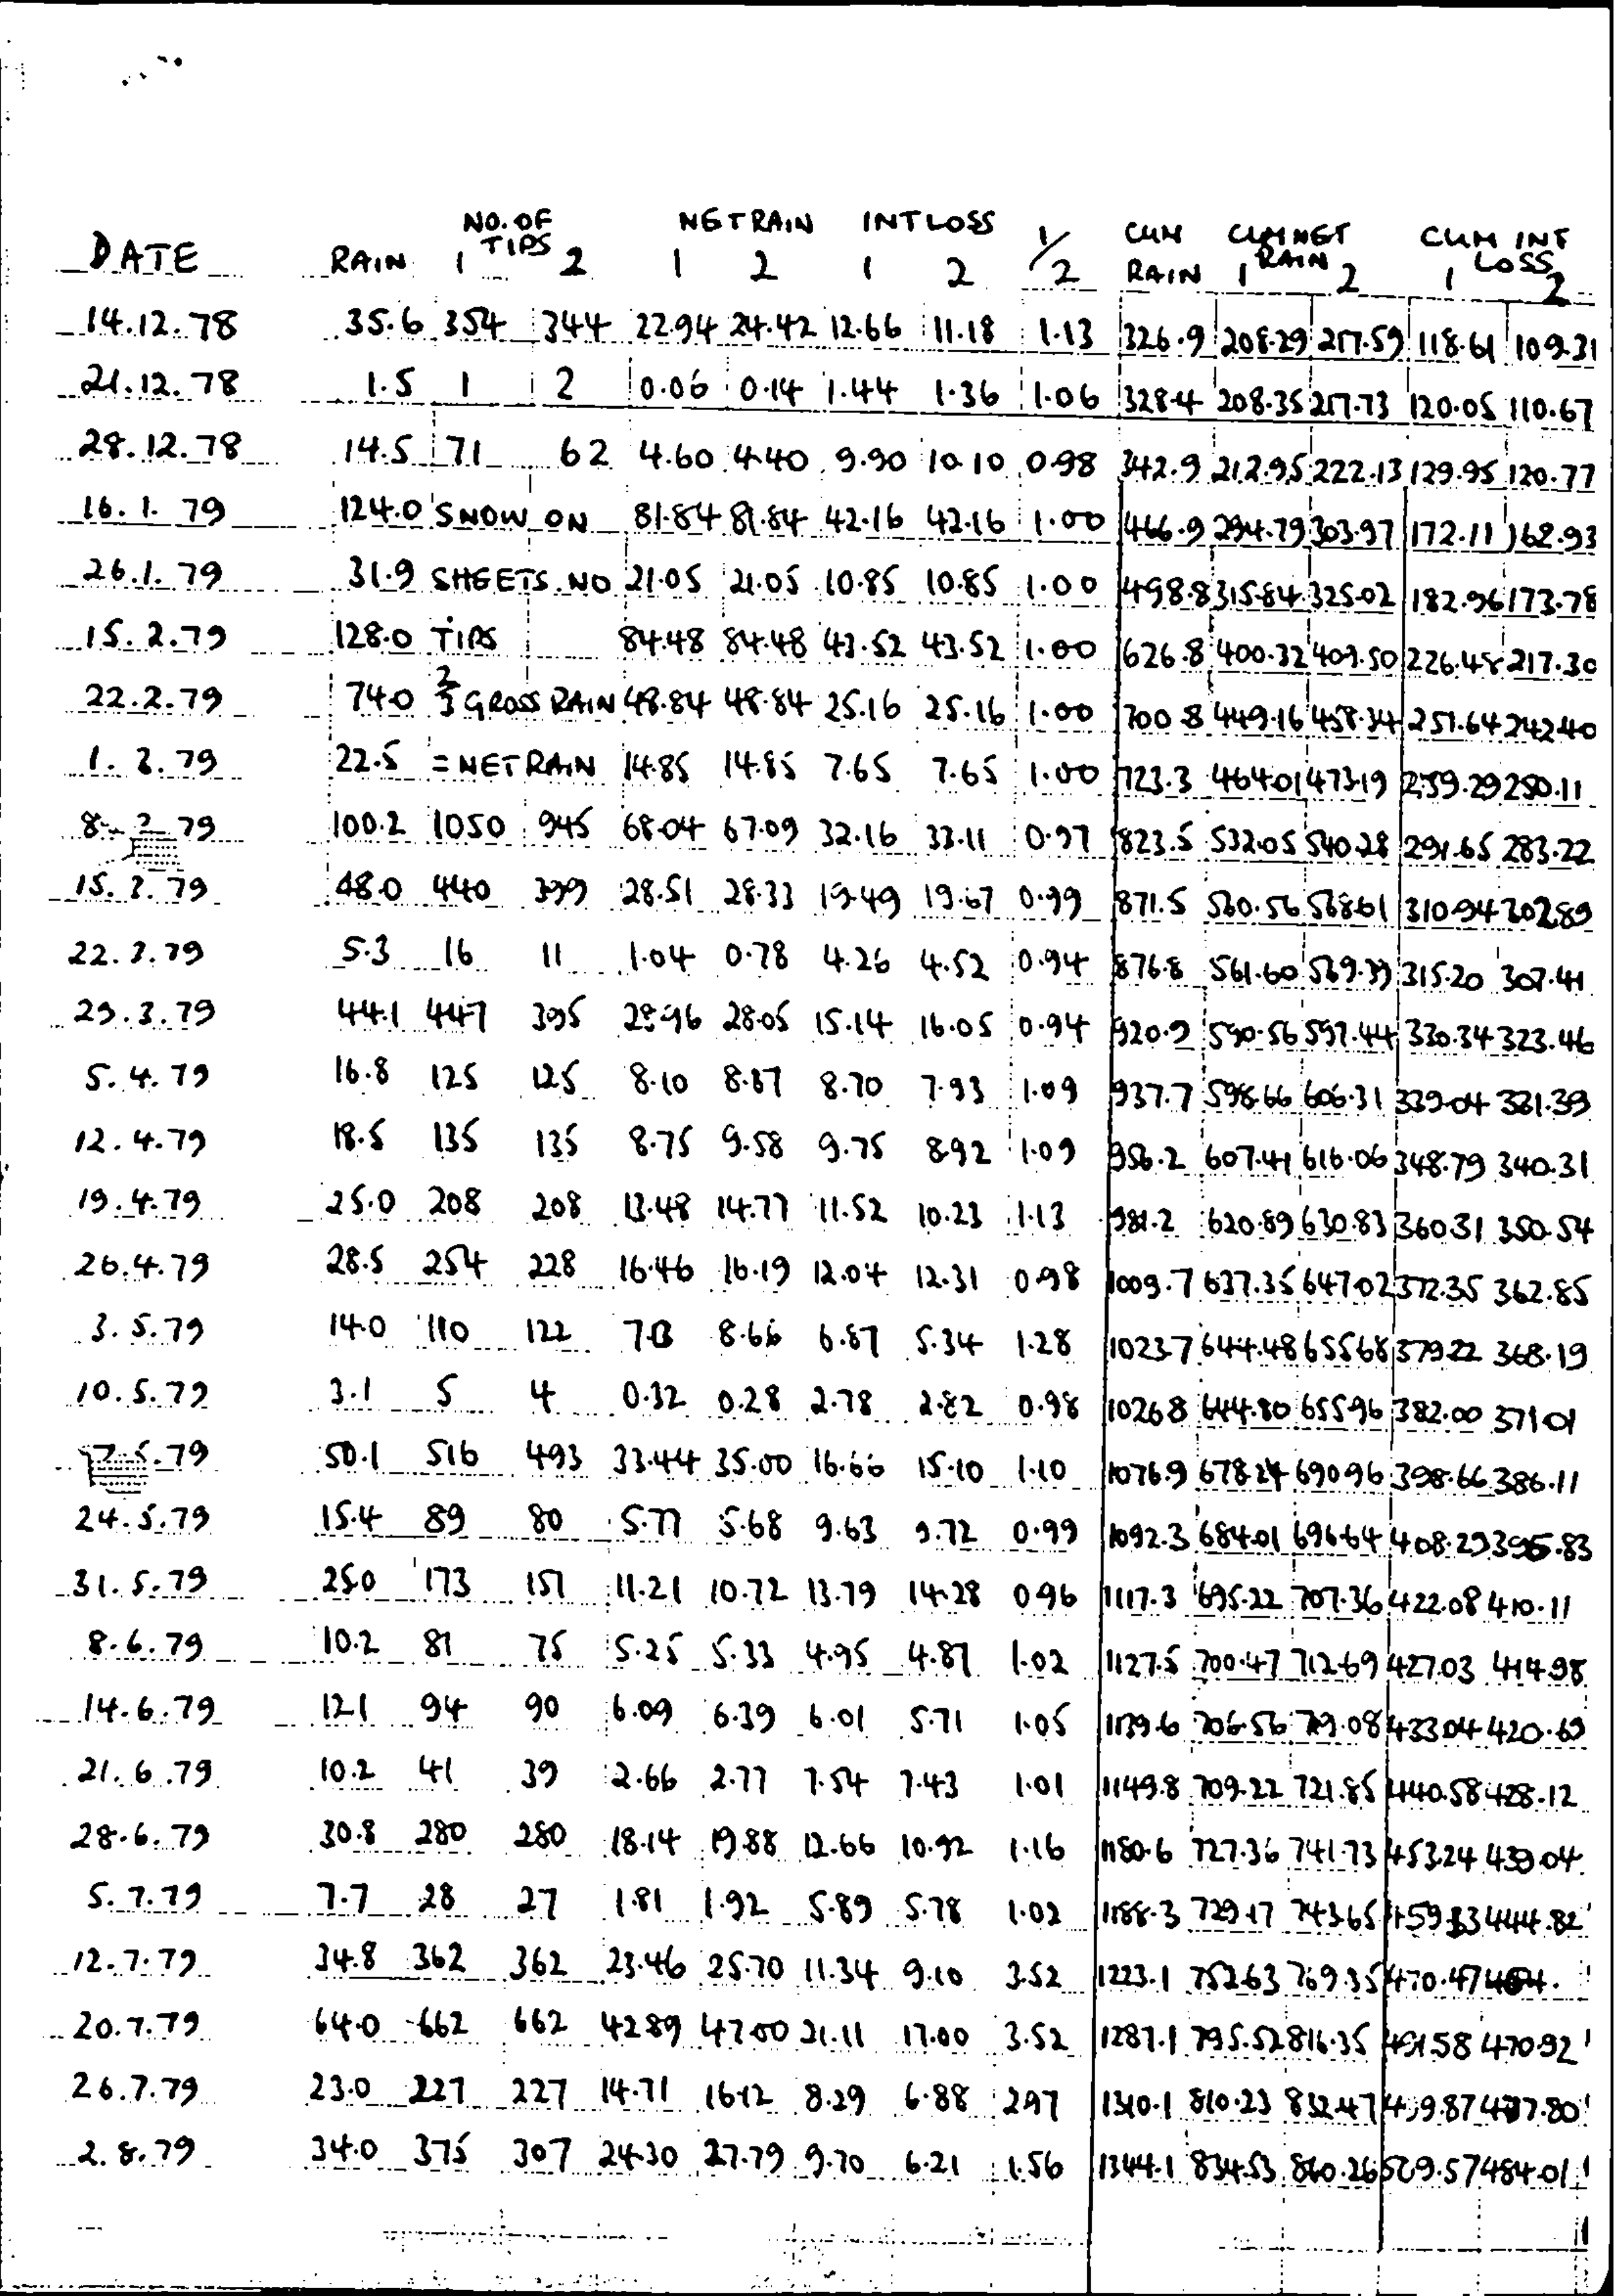 NO. OF NETRAIN INTLOSS 1/ CUM CUM NET CUM INT
DATE RAIN 1 TIPS 2 1 2 1 2 2 RAIN 1 RAIN 2 1 LOSS 2
14.12.78 35.6 354 344 22.94 24.42 12.66 11.18 1.13 326.9 208.29 217.59 118.61 109.31
21.12.78 1.5 1 2 0.06 0.14 1.44 1.36 1.06 328.4 208.35 217.73 120.05 110.67
28.12.78 14.5 71 62 4.60 4.40 9.90 10.10 0.98 342.9 212.95 222.13 129.95 120.77
16.1.79 124.0 SNOW ON 81.84 81.84 42.16 42.16 1.00 466.9 294.79 303.97 172.11 162.93
26.1.79 31.9 SHEETS. NO 21.05 21.05 10.85 10.85 1.00 498.8 315.84 325.02 182.96 173.78
15.2.79 128.0 TIPS 84.48 84.48 43.52 43.52 1.00 626.8 400.32 409.50 226.48 217.30
22.2.79 74.0 2/3 GROSS RAIN 48.84 48.84 25.16 25.16 1.00 700.8 449.16 458.34 251.64 242.40
1.3.79 22.5 = NETRAIN 14.85 14.85 7.65 7.65 1.00 723.3 464.01 473.19 259.29 250.11
8.3.79 100.2 1050 945 68.04 67.09 32.16 33.11 0.97 823.5 532.05 540.28 291.65 283.22
15.3.79 48.0 440 399 28.51 28.33 19.49 19.67 0.99 871.5 560.56 568.61 310.94 302.89
22.3.79 5.3 16 11 1.04 0.78 4.26 4.52 0.94 876.8 561.60 569.39 315.20 307.41
29.3.79 44.1 447 395 28.96 28.05 15.14 16.05 0.94 920.9 590.56 597.44 330.34 323.46
5.4.79 16.8 125 125 8.10 8.87 8.70 7.93 1.09 937.7 598.66 606.31 339.04 331.39
12.4.79 18.5 135 135 8.75 9.58 9.75 8.92 1.09 956.2 607.41 616.06 348.79 340.31
19.4.79 25.0 208 208 13.48 14.77 11.52 10.23 1.13 981.2 620.89 630.83 360.31 350.54
26.4.79 28.5 254 228 16.46 16.19 12.04 12.31 0.98 1009.7 637.35 647.02 372.35 362.85
3.5.79 14.0 110 122 7.13 8.66 6.87 5.34 1.28 1023.7 644.48 655.68 379.22 368.19
10.5.79 3.1 5 4 0.32 0.28 2.78 2.82 0.98 1026.8 644.80 655.96 382.00 371.01
17.5.79 50.1 516 493 33.44 35.00 16.66 15.10 1.10 1076.9 678.24 690.96 398.66 386.11
24.5.79 15.4 89 80 5.77 5.68 9.63 9.72 0.99 1092.3 684.01 696.64 408.29 395.83
31.5.79 25.0 173 151 11.21 10.72 13.79 14.28 0.96 1117.3 695.22 707.36 422.08 410.11
8.6.79 10.2 81 75 5.25 5.33 4.95 4.87 1.02 1127.5 700.47 712.69 427.03 414.98
14.6.79 12.1 94 90 6.09 6.39 6.01 5.71 1.05 1139.6 706.56 719.08 433.04 420.69
21.6.79 10.2 41 39 2.66 2.77 7.54 7.43 1.01 1149.8 709.22 721.85 440.58 428.12
28.6.79 30.8 280 280 18.14 19.88 12.66 10.92 1.16 1180.6 727.36 741.73 453.24 439.04
5.7.79 7.7 28 27 1.81 1.92 5.89 5.78 1.02 1188.3 729.17 743.65 459.13 444.82
12.7.79 34.8 362 362 23.46 25.70 11.34 9.10 3.52 1223.1 752.63 769.35 470.47
20.7.79 64.0 662 662 42.89 47.00 21.11 17.00 3.52 1287.1 795.52 816.35 491.58 470.92
26.7.79 23.0 227 227 14.71 16.12 8.29 6.88 2.97 1310.1 810.23 832.47 499.87 477.80
2.8.79 34.0 375 307 24.30 27.79 9.70 6.21 1.56 1344.1 834.53 860.26 509.57 484.01